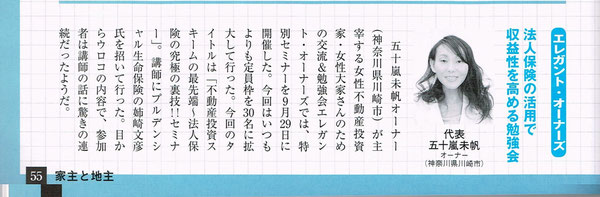 エレガント・オーナーズ
法人保険の活用で
収益性を高める勉強会
代表
五十嵐未帆
オーナー
(神奈川県川崎市)
五十嵐未帆オーナー
(神奈川県川崎市)が主
宰する女性不動産投資
家・女性大家さんのため
の交流&勉強会エレガン
ト・オーナーズでは、特
別セミナーを9月29日に
開催した。今回はいつも
よりも定員枠を30名に拡
大して行った。今回のタ
イトルは「不動産投資ス
キームの最先端~法人保
険の究極の裏技!!セミナ
ー」。講師にプルデンシ
ャル生命保険の姉崎文彦
氏を招いて行った。目か
らウロコの内容で、参加
者は講師の話に驚きの連
続だったようだ。
55 家主と地主